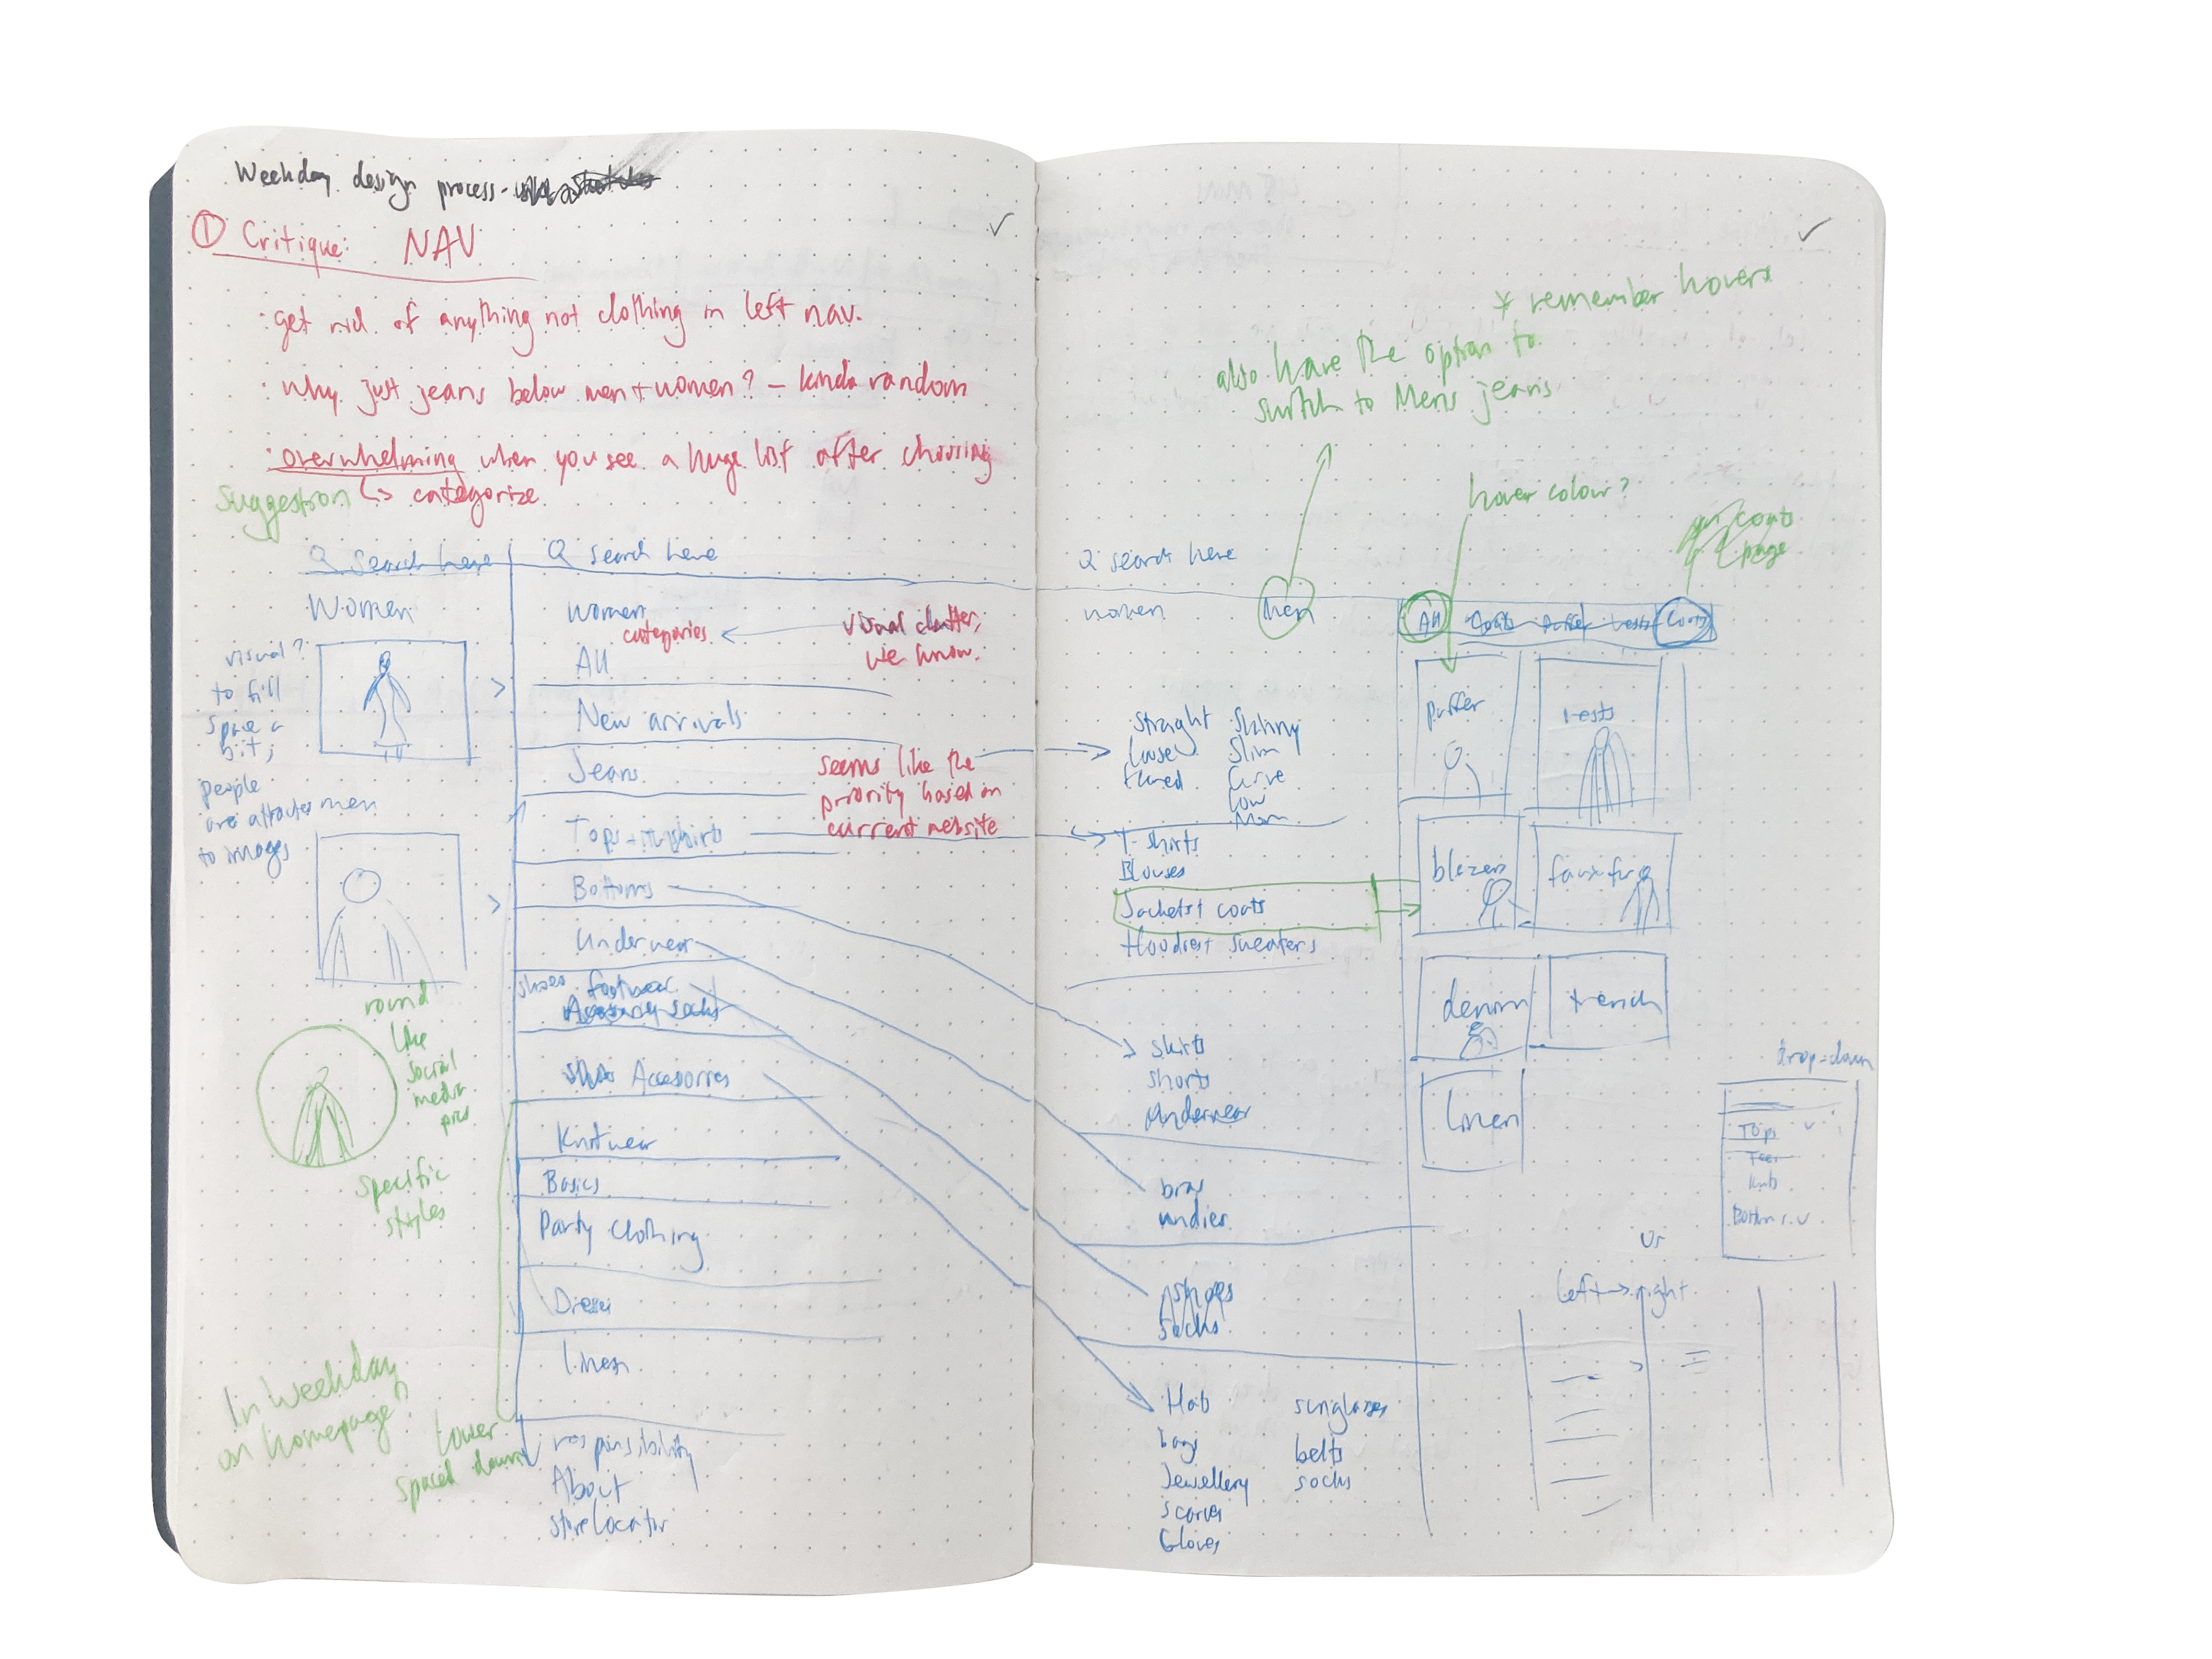 Weekday design process -
① Critique: NAV
✓
· get rid of anything not clothing in left nav.
· why just jeans below men + women? - kinda random
· overwhelming when you see a huge list after choosing
Suggestion ↳ categorize
Search here
Women
visual?
to fill
space a
bit;
people
are attracted
to images
men
round
like
social
media
pics
specific
styles
In Weekday
on homepage
lower
spaced down
Search here
Women
categories
visual clutter,
we know.
All
New arrivals
Jeans
seems like the
priority based on
current website
Bottoms
Underwear
shoes footwear
Accessories
Knitwear
Basics
Party clothing
Dresses
linen
responsibility
About
store locator
✓
* remember hovers
also have the option to
switch to Mens jeans
hover colour?
coats
page
Search here
women
Men
All
Coats Puffer Vests Coats
Straight Skinny
Loose Slim
flared Curve
Low
Mom
T-shirts
Blouses
Jackets + coats
Hoodies + sweaters
skirts
shorts
Underwear
bras
undies
shoes
socks
Hats sunglasses
bags belts
Jewellery socks
scarves
Gloves
puffer
vests
blazers
faux fur
denim
trench
linen
drop-down
Tops
Tees
Bottoms
or
left → right